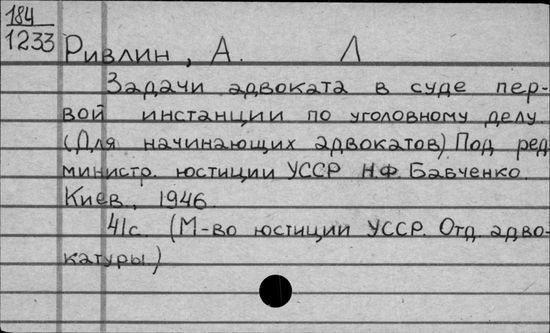 184
1233 Ривлин, А. Л
Задачи адвоката в суде пер-
вой инстанции по уголовному делу.
(Для начинающих адвокатов) Под ред
министр. юстиции УССР Н.Ф. Бабченко.
Киев, 1946.
41с. (М-во юстиции УССР. Отд. адво-
катуры.)